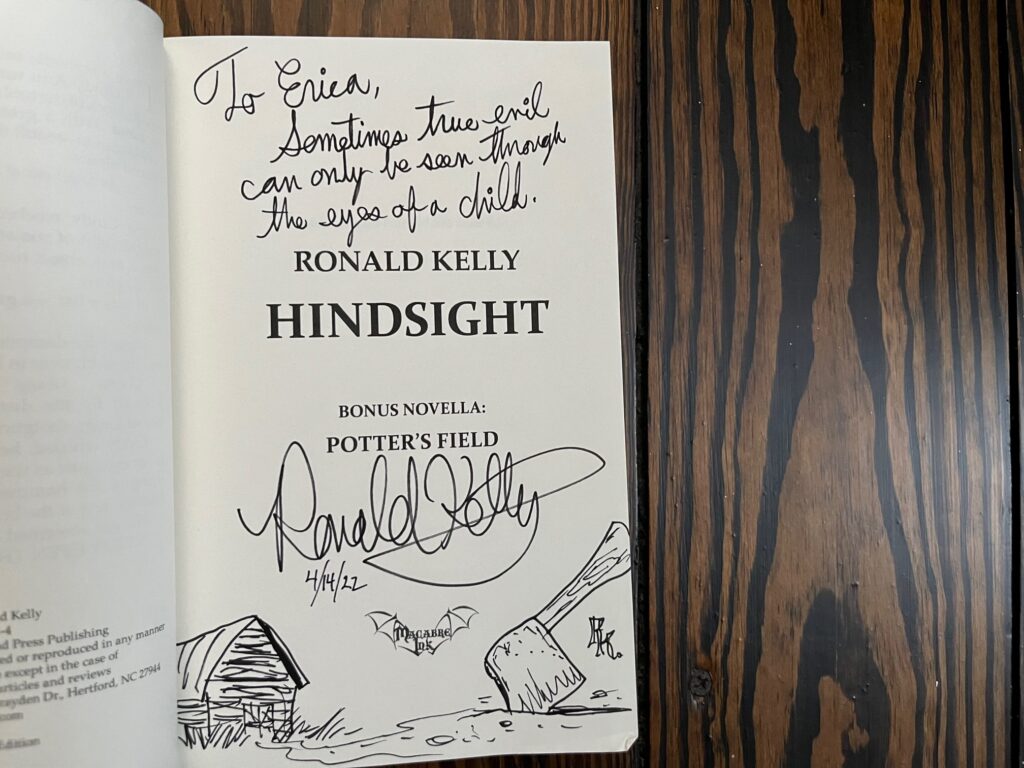 To Erica,
Sometimes true evil
can only be seen through
the eyes of a child.
RONALD KELLY
HINDSIGHT
BONUS NOVELLA:
POTTER'S FIELD
Ronald Kelly
4/14/22
MACABRE
INK
RK.
d Kelly
-4
d Press Publishing
ed or reproduced in any manner
except in the case of
articles and reviews
ayden Dr., Hertford, NC 27944
com
Edition